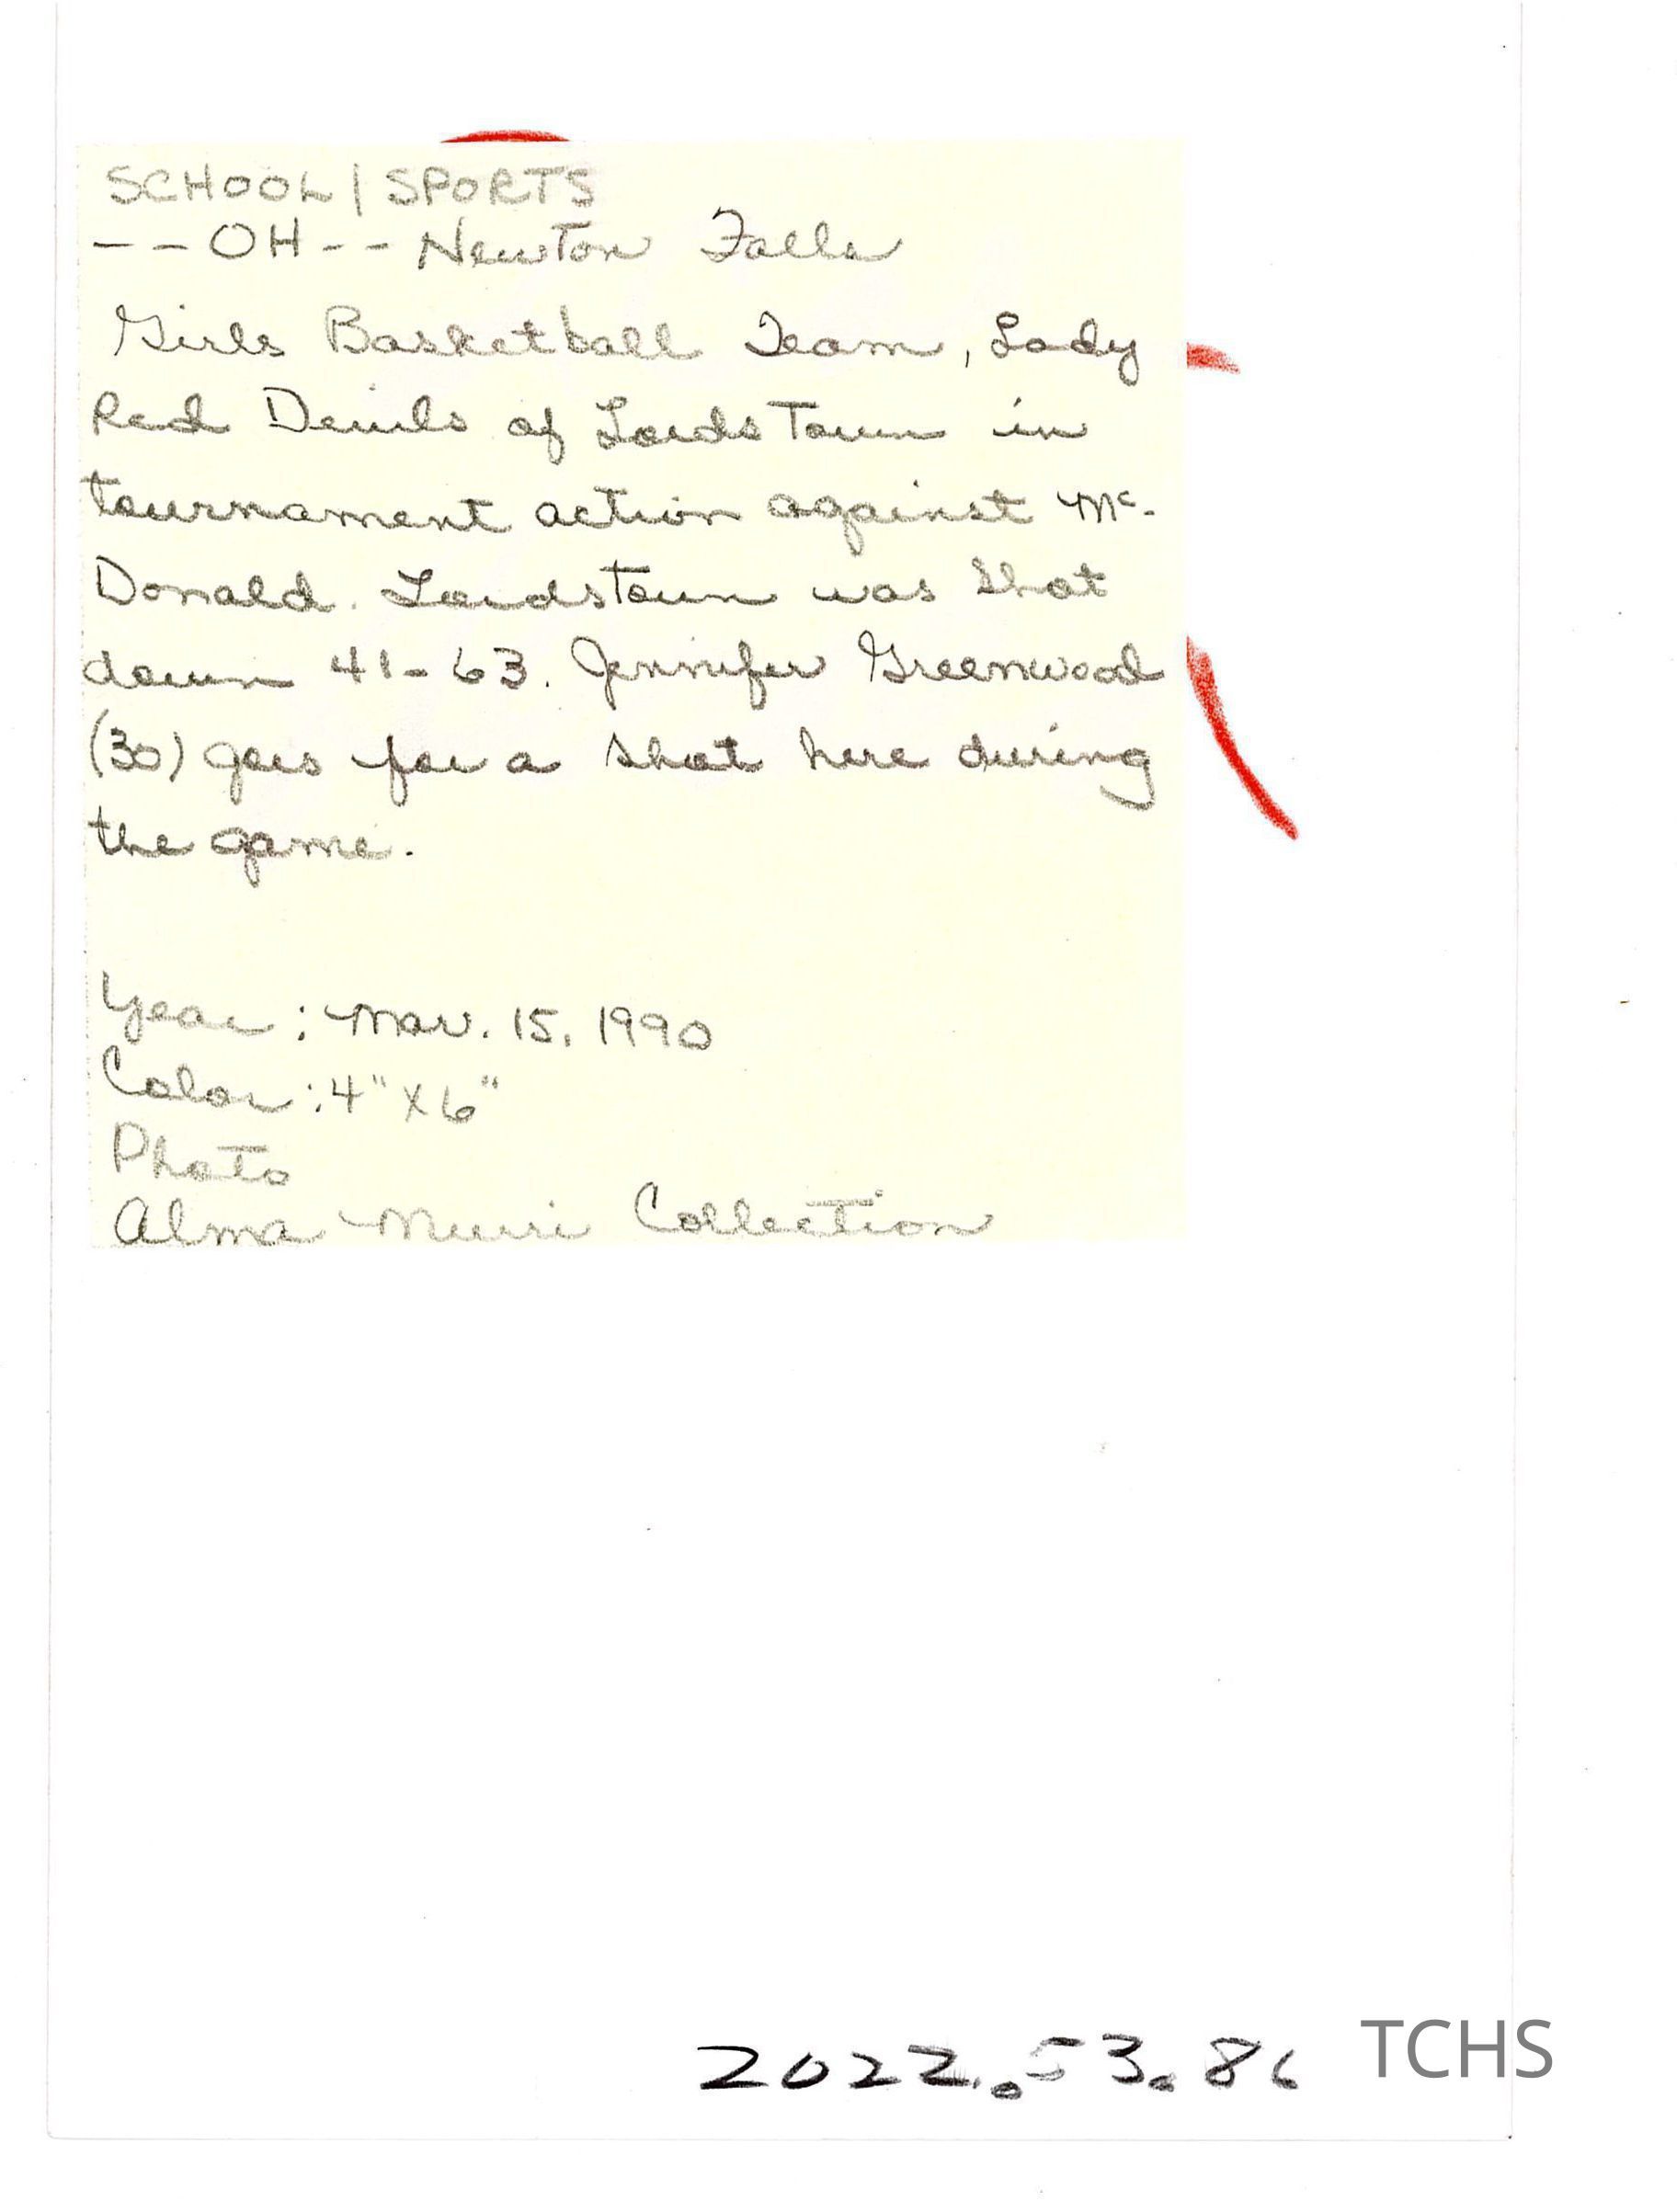 SCHOOL / SPORTS
-- OH -- Newton Falls
Girls Basketball Team, Lady
Red Devils of Lordstown in
tournament action against Mc-
Donald. Lordstown was shot
down 41-63. Jennifer Greenwood
(30) goes for a shot here during
the game.
Year : Mar. 15, 1990
Color : 4" x 6"
Photo
Alma Collection
2022.53.86
TCHS